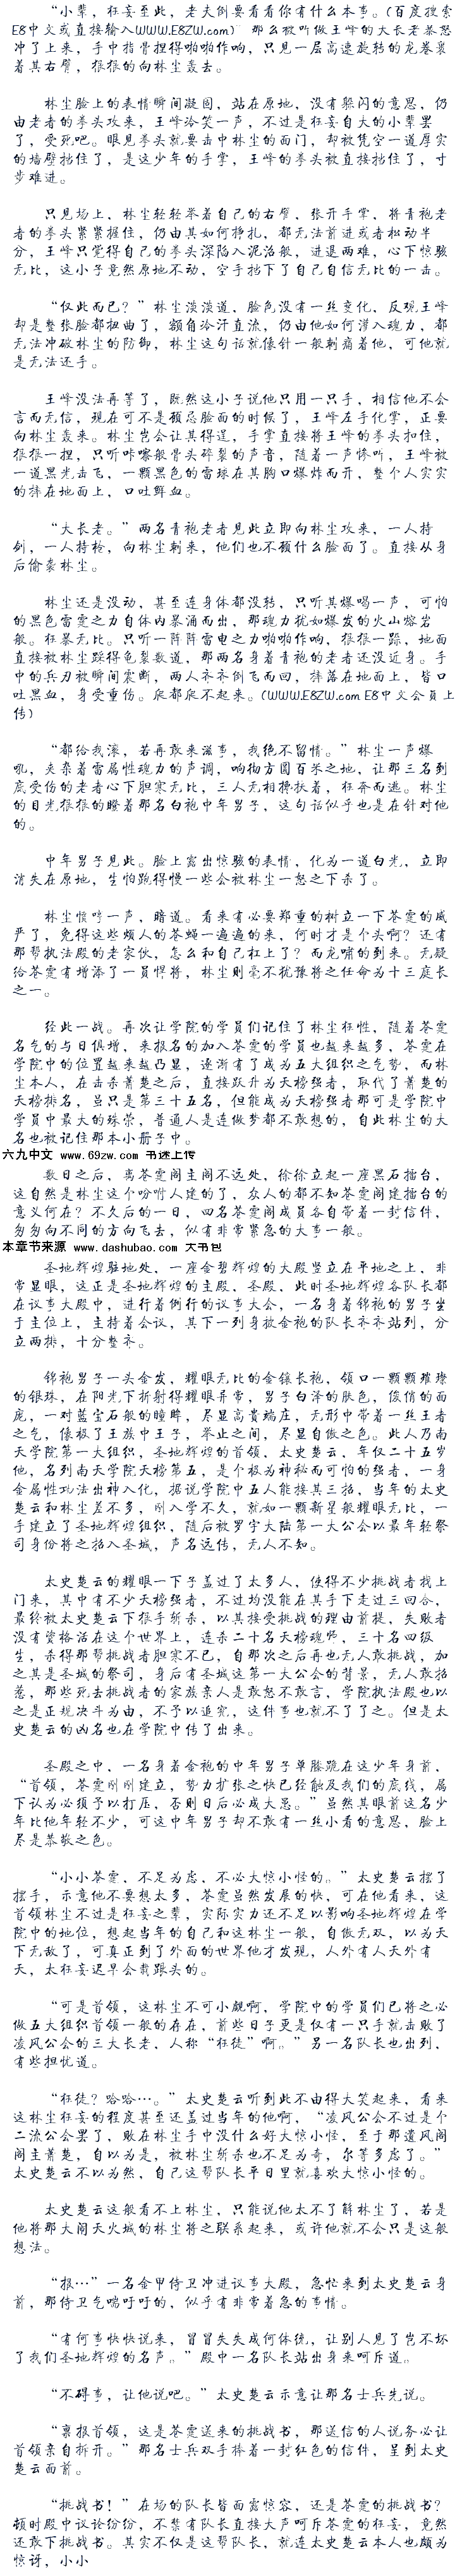 “小辈，狂妄至此，老夫倒要看看你有什么本事。(百度搜索
E8中文或直接输入WWW.E8ZW.com)” 那么被听做王峰的大长老暴怒
冲了上来，手中指骨捏得啪啪作响，只见一层高速旋转的龙卷裹
着其右臂，狠狠的向林尘轰去。
林尘脸上的表情瞬间凝固，站在原地，没有躲闪的意思，仍
由老者的拳头攻来，王峰冷笑一声，不过是狂妄自大的小辈罢
了，受死吧。眼见拳头就要击中林尘的面门，却被凭空一道厚实
的墙壁挡住了，是这少年的手掌，王峰的拳头被直接挡住了，寸
步难进。
只见场上，林尘轻轻举着自己的右臂，张开手掌，将青袍老
者的拳头紧紧握住，仍由其如何挣扎，都无法前进或者松动半
分，王峰只觉得自己的拳头深陷入泥沼般，进退两难，心下惊骇
无比，这小子竟然原地不动，空手挡下了自己自信无比的一击。
“仅此而已？”林尘淡淡道，脸色没有一丝变化，反观王峰
却是整张脸都扭曲了，额角冷汗直流，仍由他如何潜入魂力，都
无法冲破林尘的防御，林尘这句话就像针一般刺痛着他，可他就
是无法还手。
王峰没法再等了，既然这小子说他只用一只手，相信他不会
言而无信，现在可不是顾忌脸面的时候了，王峰左手化掌，正要
向林尘轰来。林尘岂会让其得逞，手掌直接将王峰的拳头扣住，
狠狠一捏，只听咔嚓般骨头碎裂的声音，随着一声惨叫，王峰被
一道黑光击飞，一颗黑色的雷球在其胸口爆炸而开，整个人实实
的摔在地面上，口吐鲜血。
“大长老。”两名青袍老者见此立即向林尘攻来，一人持
剑，一人持枪，向林尘刺来，他们也不顾什么脸面了。直接从身
后偷袭林尘。
林尘还是没动，甚至连身体都没转，只听其爆喝一声，可怕
的黑色雷霆之力自体内暴涌而出，那魂力犹如爆发的火山熔岩
般。狂暴无比。只听一阵阵雷电之力啪啪作响，狠狠一跺，地面
直接被林尘踩得龟裂数道，那两名身着青袍的老者还没近身。手
中的兵刃被瞬间震断，两人齐齐倒飞而回，摔落在地面上，皆口
吐黑血，身受重伤。爬都爬不起来。(WWW.E8ZW.com E8中文会员上
传)
“都给我滚，若再敢来滋事，我绝不留情。”林尘一声爆
吼，夹杂着雷属性魂力的声调，响彻方圆百米之地，让那三名到
底受伤的老者心下胆寒无比，三人无相搀扶着，狂奔而逃。林尘
的目光狠狠的瞪着那名白袍中年男子，这句话似乎也是在针对他
的。
中年男子见此。脸上露出惊骇的表情，化为一道白光，立即
消失在原地，生怕跑得慢一些会被林尘一怒之下杀了。
林尘愤哼一声，暗道。看来有必要郑重的树立一下苍霆的威
严了，免得这些烦人的苍蝇一遍遍的来，何时才是个头啊？还有
那帮执法殿的老家伙，怎么和自己杠上了？而龙啸的到来。无疑
给苍霆有增添了一员悍将，林尘则毫不犹豫将之任命为十三庭长
之一。
经此一战。再次让学院的学员们记住了林尘狂性，随着苍霆
名气的与日俱增，来报名的加入苍霆的学员也越来越多，苍霆在
学院中的位置越来越凸显，逐渐有了成为五大组织之气势，而林
尘本人，在击杀萧楚之后，直接跃升为天榜强者，取代了萧楚的
天榜排名，虽只是第三十五名，但能成为天榜强者那可是学院中
学员中最大的殊荣，普通人是连做梦都不敢想的，自此林尘的大
名也被记住那本小册子中。
六九中文 www.69zw.com 书迷上传
数日之后，离苍霆阁主阁不远处，徐徐立起一座黑石擂台，
这自然是林尘这个吩咐人建的了，众人的都不知苍霆阁建擂台的
意义何在？不久后的一日，四名苍霆阁成员各自带着一封信件，
匆匆向不同的方向飞去，似有非常紧急的大事一般。
本章节来源 www.dashubao.com 大书包
圣地辉煌驻地处，一座金碧辉煌的大殿竖立在平地之上，非
常显眼，这正是圣地辉煌的主殿，圣殿，此时圣地辉煌各队长都
在议事大殿中，进行着例行的议事大会，一名身着锦袍的男子坐
于主位上，主持着会议，其下一列身披金袍的队长齐齐站列，分
立两排，十分整齐。
锦袍男子一头金发，耀眼无比的金镶长袍，领口一颗颗璀璨
的银珠，在阳光下折射得耀眼异常，男子白泽的肤色，俊俏的面
庞，一对蓝宝石般的瞳眸，尽显高贵端庄，无形中带着一丝王者
之气，像极了王族中王子，举止之间，尽显自傲之色。此人乃南
天学院第一大组织，圣地辉煌的首领，太史楚云，年仅二十五岁
他，名列南天学院天榜第五，是个极为神秘而可怕的强者，一身
金属性功法出神入化，据说学院中五人能接其三招，当年的太史
楚云和林尘差不多，刚入学不久，就如一颗新星般耀眼无比，一
手建立了圣地辉煌组织，随后被罗宇大陆第一大公会以最年轻祭
司身份将之招入圣城，声名远传，无人不知。
太史楚云的耀眼一下子盖过了太多人，使得不少挑战者找上
门来，其中有不少天榜强者，不过均没能在其手下走过三回合，
最终被太史楚云下狠手斩杀，以其接受挑战的理由前提，失败者
没有资格活在这个世界上，连杀二十名天榜魂师，三十名四级
生，杀得那帮挑战者胆寒不已，自那次之后再也无人敢挑战，加
之其是圣城的祭司，身后有圣城这第一大公会的背景，无人敢招
惹，那些死去挑战者的家族亲人是敢怒不敢言，学院执法殿也以
之是正规决斗为由，不予以追究，这件事也就不了了之。但是太
史楚云的凶名也在学院中传了出来。
圣殿之中，一名身着金袍的中年男子单膝跪在这少年身前，
“首领，苍霆刚刚建立，势力扩张之快已经触及我们的底线，属
下认为必须予以打压，否则日后必成大患。”虽然其眼前这名少
年比他年轻不少，可这中年男子却不敢有一丝小看的意思，脸上
尽是恭敬之色。
“小小苍霆，不足为虑，不必大惊小怪的。”太史楚云摆了
摆手，示意他不要想太多，苍霆虽然发展的快，可在他看来，这
首领林尘不过是狂妄之辈，实际实力还不足以影响圣地辉煌在学
院中的地位，想起当年的自己和这林尘一般，自傲无双，以为天
下无敌了，可真正到了外面的世界他才发现，人外有人天外有
天，太狂妄迟早会栽跟头的。
“可是首领，这林尘不可小觑啊，学院中的学员们已将之必
做五大组织首领一般的存在，前些日子更是仅有一只手就击败了
凌风公会的三大长老，人称“狂徒”啊。”另一名队长也出列，
有些担忧道。
“狂徒？哈哈…。”太史楚云听到此不由得大笑起来，看来
这林尘狂妄的程度甚至还盖过当年的他啊，“凌风公会不过是个
二流公会罢了，败在林尘手中没什么好大惊小怪，至于那道风阁
阁主萧楚，自以为是，被林尘斩杀也不足为奇，尔等多虑了。”
太史楚云不以为然，自己这帮队长平日里就喜欢大惊小怪的。
太史楚云这般看不上林尘，只能说他太不了解林尘了，若是
他将那大闹天火城的林尘将之联系起来，或许他就不会只是这般
想法。
“报…”一名金甲侍卫冲进议事大殿，急忙来到太史楚云身
前，那侍卫气喘吁吁的，似乎有非常着急的事情。
“有何事快快说来，冒冒失失成何体统，让别人见了岂不坏
了我们圣地辉煌的名声。”殿中一名队长站出身来呵斥道。
“不碍事，让他说吧。”太史楚云示意让那名士兵先说。
“禀报首领，这是苍霆送来的挑战书，那送信的人说务必让
首领亲自拆开。”那名士兵双手捧着一封红色的信件，呈到太史
楚云面前。
“挑战书！”在场的队长皆面露惊容，还是苍霆的挑战书？
顿时殿中议论纷纷，不禁有队长直接大声呵斥苍霆的狂妄，竟然
还敢下挑战书。其实不仅是这帮队长，就连太史楚云本人也颇为
惊讶，小小